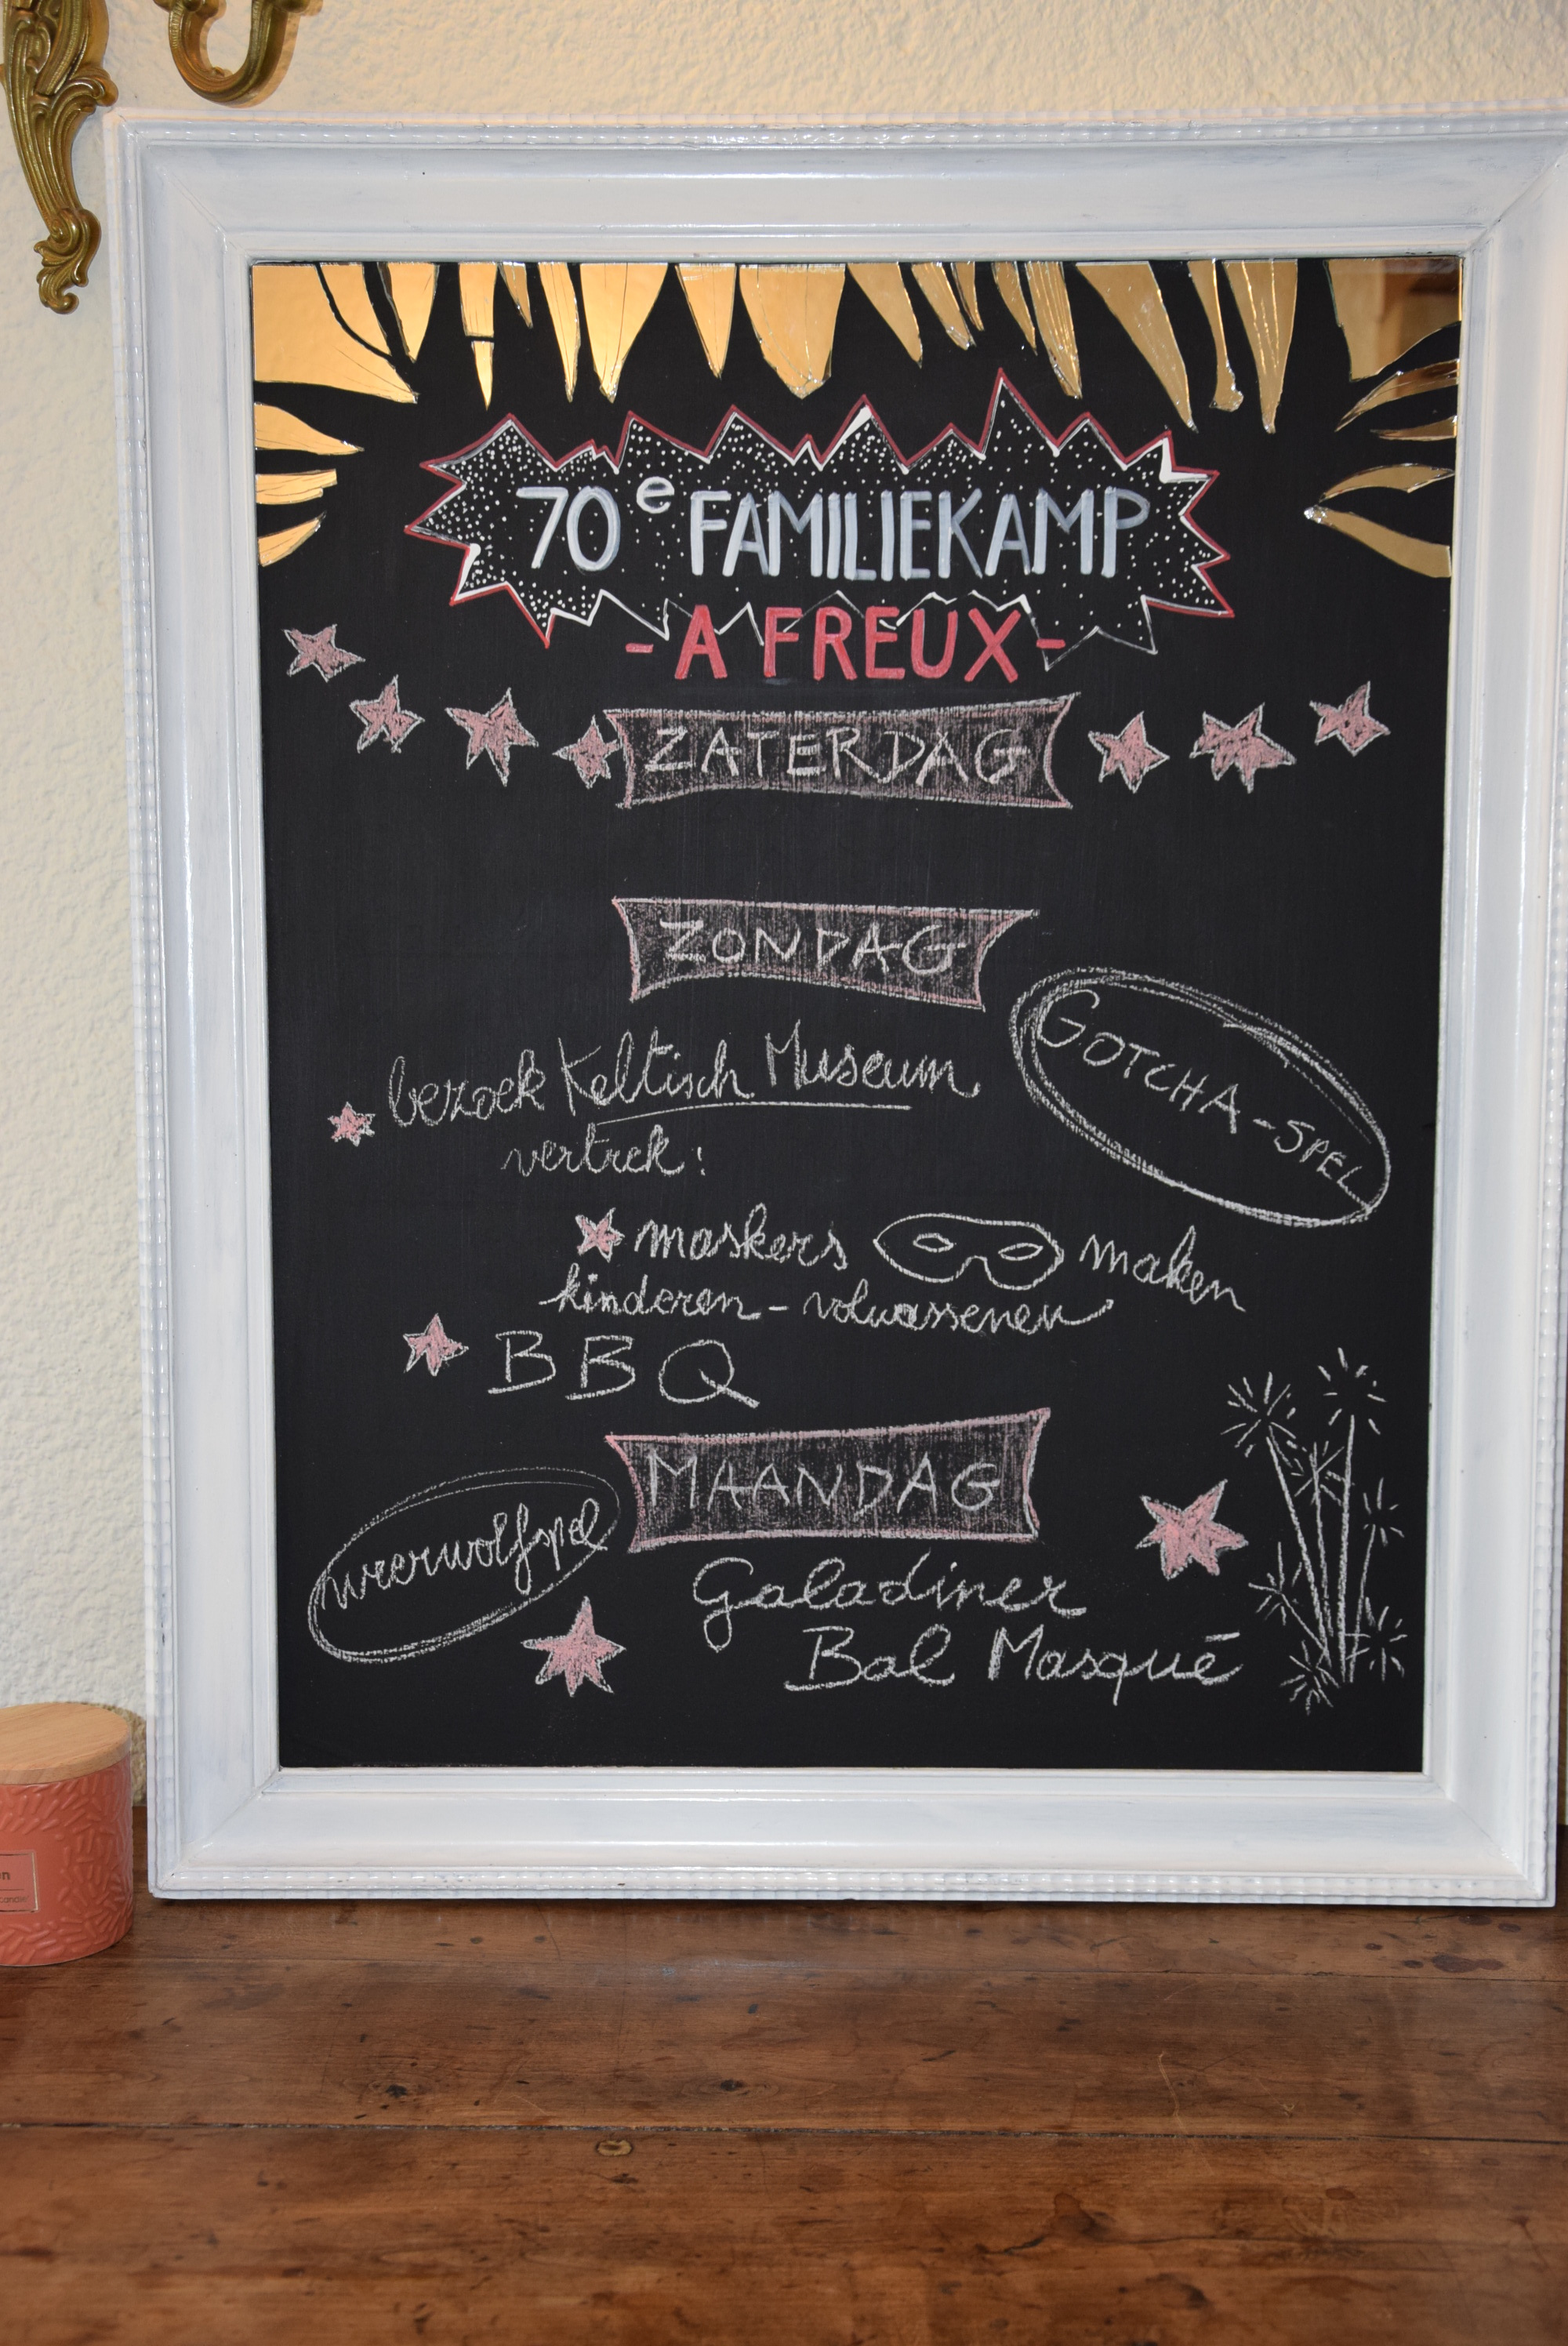 70e FAMILIEKAMP
- A FREUX -
ZATERDAG
ZONDAG
GOTCHA-SPEL
bezoek Keltisch Museum
vertrek:
maskers maken
kinderen - volwassenen
BBQ
MAANDAG
weerwolfspel
Galadiner
Bal Masqué